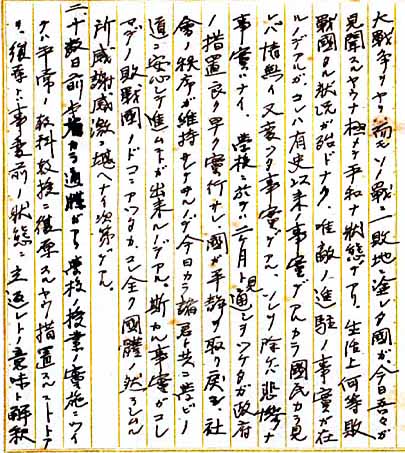 大戦争ヲヤリ而モソノ戦ニ一敗地ニ塗レタ國ガ今日吾々ガ
見聞スルヤウナ極メテ平和ナ状態デアリ、生活上何等敗
戦國タル状况ガ殆ドナク、唯敵ノ進駐ノ事實ガ在
ルノデアルガ、コレハ有史以来ノ事實デアルカラ國民カラ見
レバ情無イ又憂フ事實デアル、ソレヲ除ケバ悲惨ナ
事實ハナイ、學校ニ於テハ二ケ月ト見通シヲツケタガ政府
ノ措置良ク早ク實行サレ國ガ平静ヲ取リ戻シ、社
會ノ秩序ガ維持サレタルノデ今日カラ諸君ト共ニ學ビノ
道ニ安心シテ進ムコトガ出来ルノデアル、斯カル事實ガコレ
マデノ敗戦國ノドコニアツタカ、コレ全ク國體ノ然ラシム
所感謝感激ニ堪ヘナイ次第デアル
二十数日前 カラ通牒ガアリ學校ノ授業ノ實施ニツイ
テハ平常ノ教科教授ニ復原スルヤウ措置スルコトトア
リ、復原トハ事変前ノ状態ニ立返レトノ意味ト解釈